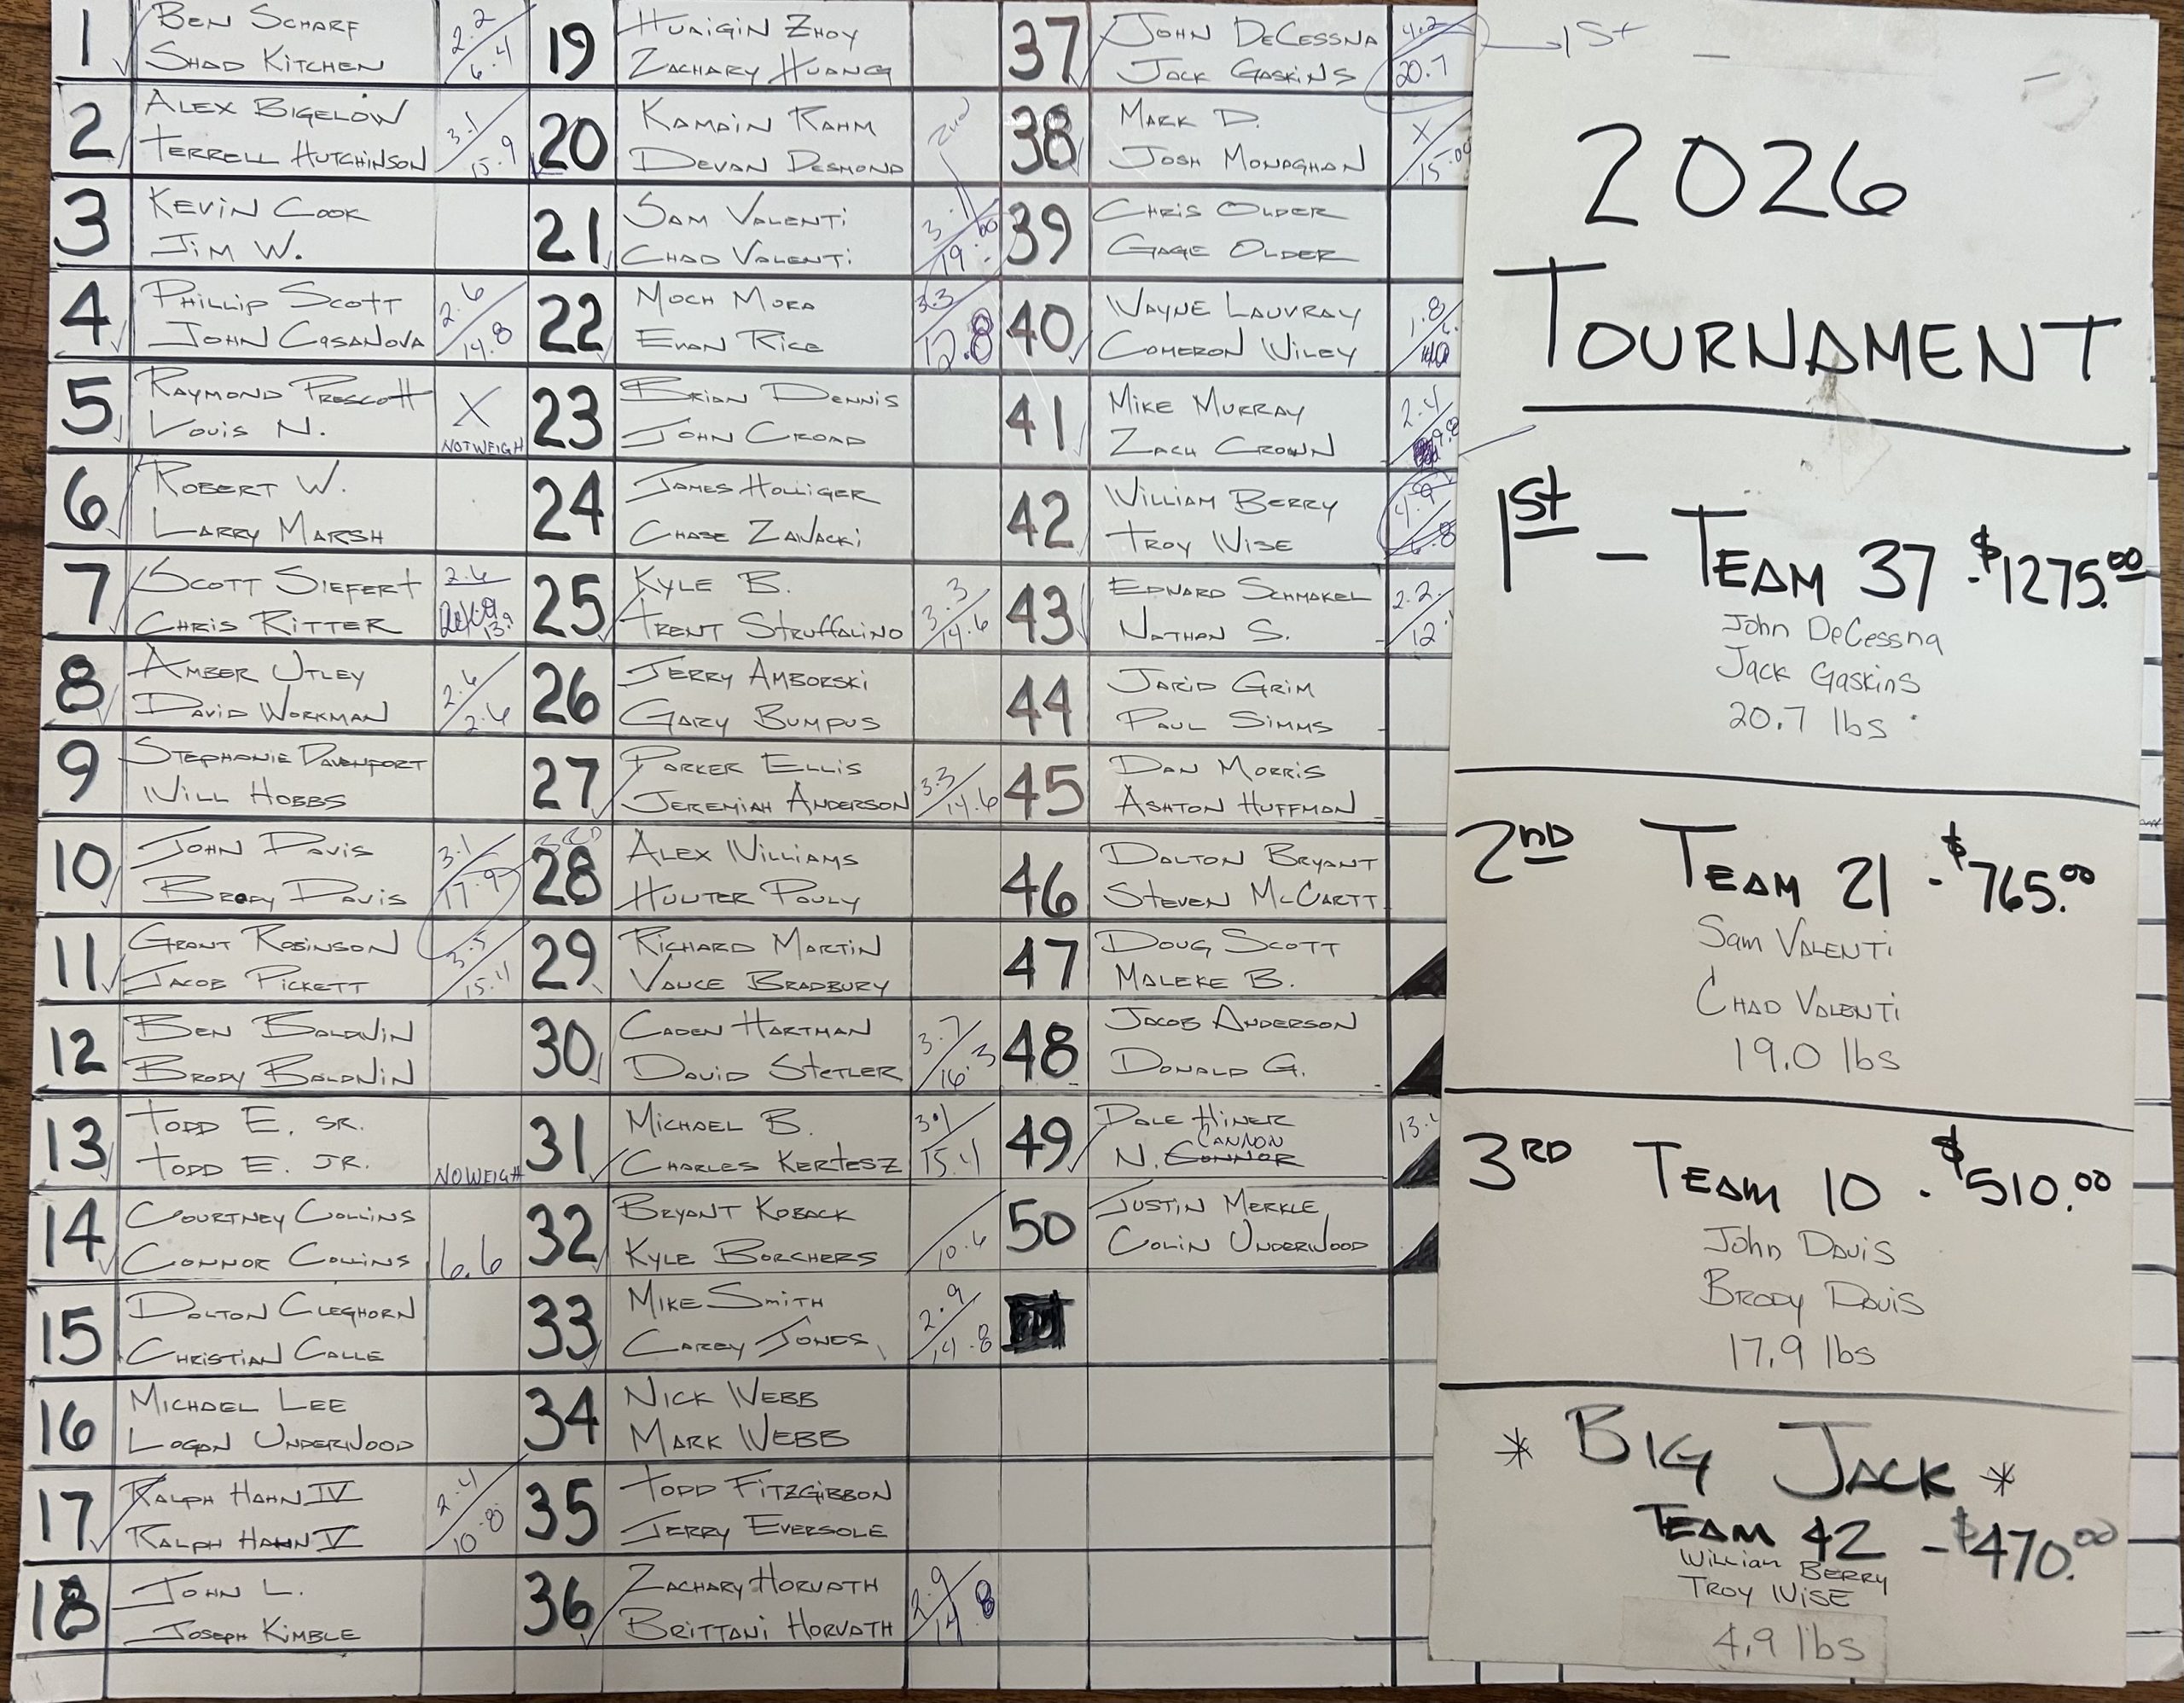 1
BEN SCHARF
SHAD KITCHEN
2.2
6.4
2
ALEX BIGELOW
TERRELL HUTCHINSON
3.1
15.9
3
KEVIN COOK
JIM W.
4
PHILLIP SCOTT
JOHN CASANOVA
2.6
14.8
5
RAYMOND PRESCOTT
LOUIS N.
X
NOTWEIGH
6
ROBERT W.
LARRY MARSH
7
SCOTT SIEFERT
CHRIS RITTER
2.6
13.9
8
AMBER UTLEY
DAVID WORKMAN
2.6
2.6
9
STEPHANIE DAVENPORT
WILL HOBBS
10
JOHN DAVIS
BRODY DAVIS
3.1
17.9
3RD
11
GRANT ROBINSON
JACOB PICKETT
3.5
15.4
12
BEN BALDWIN
BRODY BALDWIN
13
TODD E. SR.
TODD E. JR.
NO WEIGH
14
COURTNEY COLLINS
CONNOR COLLINS
6.6
15
DALTON CLEGHORN
CHRISTIAN CALLE
16
MICHAEL LEE
LOGAN UNDERWOOD
17
RALPH HAHN IV
RALPH HAHN V
2.4
10.8
18
JOHN L.
JOSEPH KIMBLE
19
HUAIGIN ZHOY
ZACHARY HUANG
20
KAMAIN RAHM
DEVAN DESMOND
2nd
21
SAM VALENTI
CHAD VALENTI
3.1
19.00
22
MOCH MORA
EVAN RICE
3.3
12.8
23
BRIAN DENNIS
JOHN CROAD
24
JAMES HOLLIGER
CHASE ZAWACKI
25
KYLE B.
TRENT STRUFFALINO
3.3
14.6
26
JERRY AMBORSKI
GARY BUMPUS
27
PARKER ELLIS
JEREMIAH ANDERSON
3.3
14.6
28
ALEX WILLIAMS
HUNTER POULY
29
RICHARD MARTIN
VANCE BRADBURY
30
CADEN HARTMAN
DAVID STETLER
3.7
16.3
31
MICHAEL B.
CHARLES KERTESZ
3.1
15.4
32
BRYANT KOBACK
KYLE BORCHERS
10.6
33
MIKE SMITH
CAREY JONES
2.9
14.8
34
NICK WEBB
MARK WEBB
35
TODD FITZGIBBON
JERRY EVERSOLE
36
ZACHARY HORVATH
BRITTANI HORVATH
2.9
14.8
37
JOHN DECESSNA
JACK GASKINS
4.2
20.7
1St
38
MARK D.
JOSH MONAGHAN
X
15.00
39
CHRIS OLDER
GAGE OLDER
40
WAYNE LAUVRAY
CAMERON WILEY
1.8
41
MIKE MURRAY
ZACH CROWN
2.4
9.8
42
WILLIAM BERRY
TROY WISE
4.9
6.8
43
EDWARD SCHMAKEL
NATHAN S.
2.2
12
44
JARID GRIM
PAUL SIMMS
45
DAN MORRIS
ASHTON HUFFMAN
46
DALTON BRYANT
STEVEN MCCARTT
47
DOUG SCOTT
MALEKE B.
48
JACOB ANDERSON
DONALD G.
49
DALE HINER
CANNON
N. CONNOR
50
JUSTIN MERKLE
COLIN UNDERWOOD
2026
TOURNAMENT
1St - TEAM 37 - $1275.00
John DeCessna
Jack Gaskins
20.7 lbs
2ND TEAM 21 - $765.00
Sam VALENTI
CHAD VALENTI
19.0 lbs
3RD TEAM 10 - $510.00
John DAVIS
BRODY DAVIS
17.9 lbs
* BIG JACK *
TEAM 42 - $470.00
William BERRY
TROY WISE
4.9 lbs